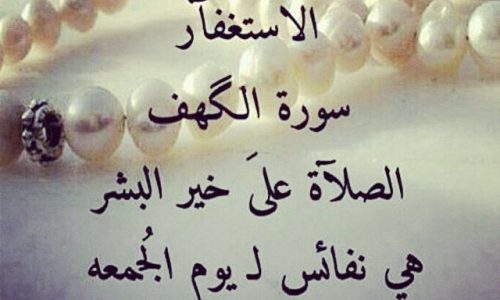 الاستغفآر
سورة الگهف
الصلآة علىَ خير البشر
هي نفائس لـ يوم الجُمعه